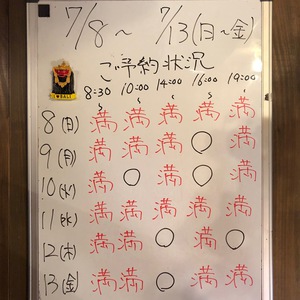 7/8～7/13(日～金)
ご予約状況
8:30 10:00 14:00 16:00 19:00
～ ～ ～ ～ ～
8(日) 満 満 満 満 満
9(月) 満 満 満 ○ 満
10(火) 満 ○ 満 ○ 満
11(水) 満 満 満 満 満
12(木) 満 満 ○ 満 ○
13(金) 満 満 ○ 満 満